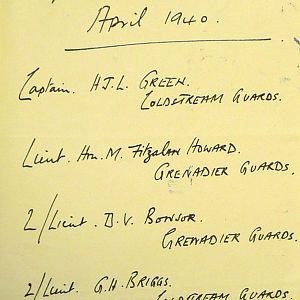 April 1940.
Captain. H.J.L. GREEN.
COLDSTREAM GUARDS.
Lieut. Hon. M. Fitzalan Howard.
GRENADIER GUARDS.
2/Lieut. D.V. BONSOR.
GRENADIER GUARDS.
2/Lieut. G.H. BRIGGS.
COLDSTREAM GUARDS.